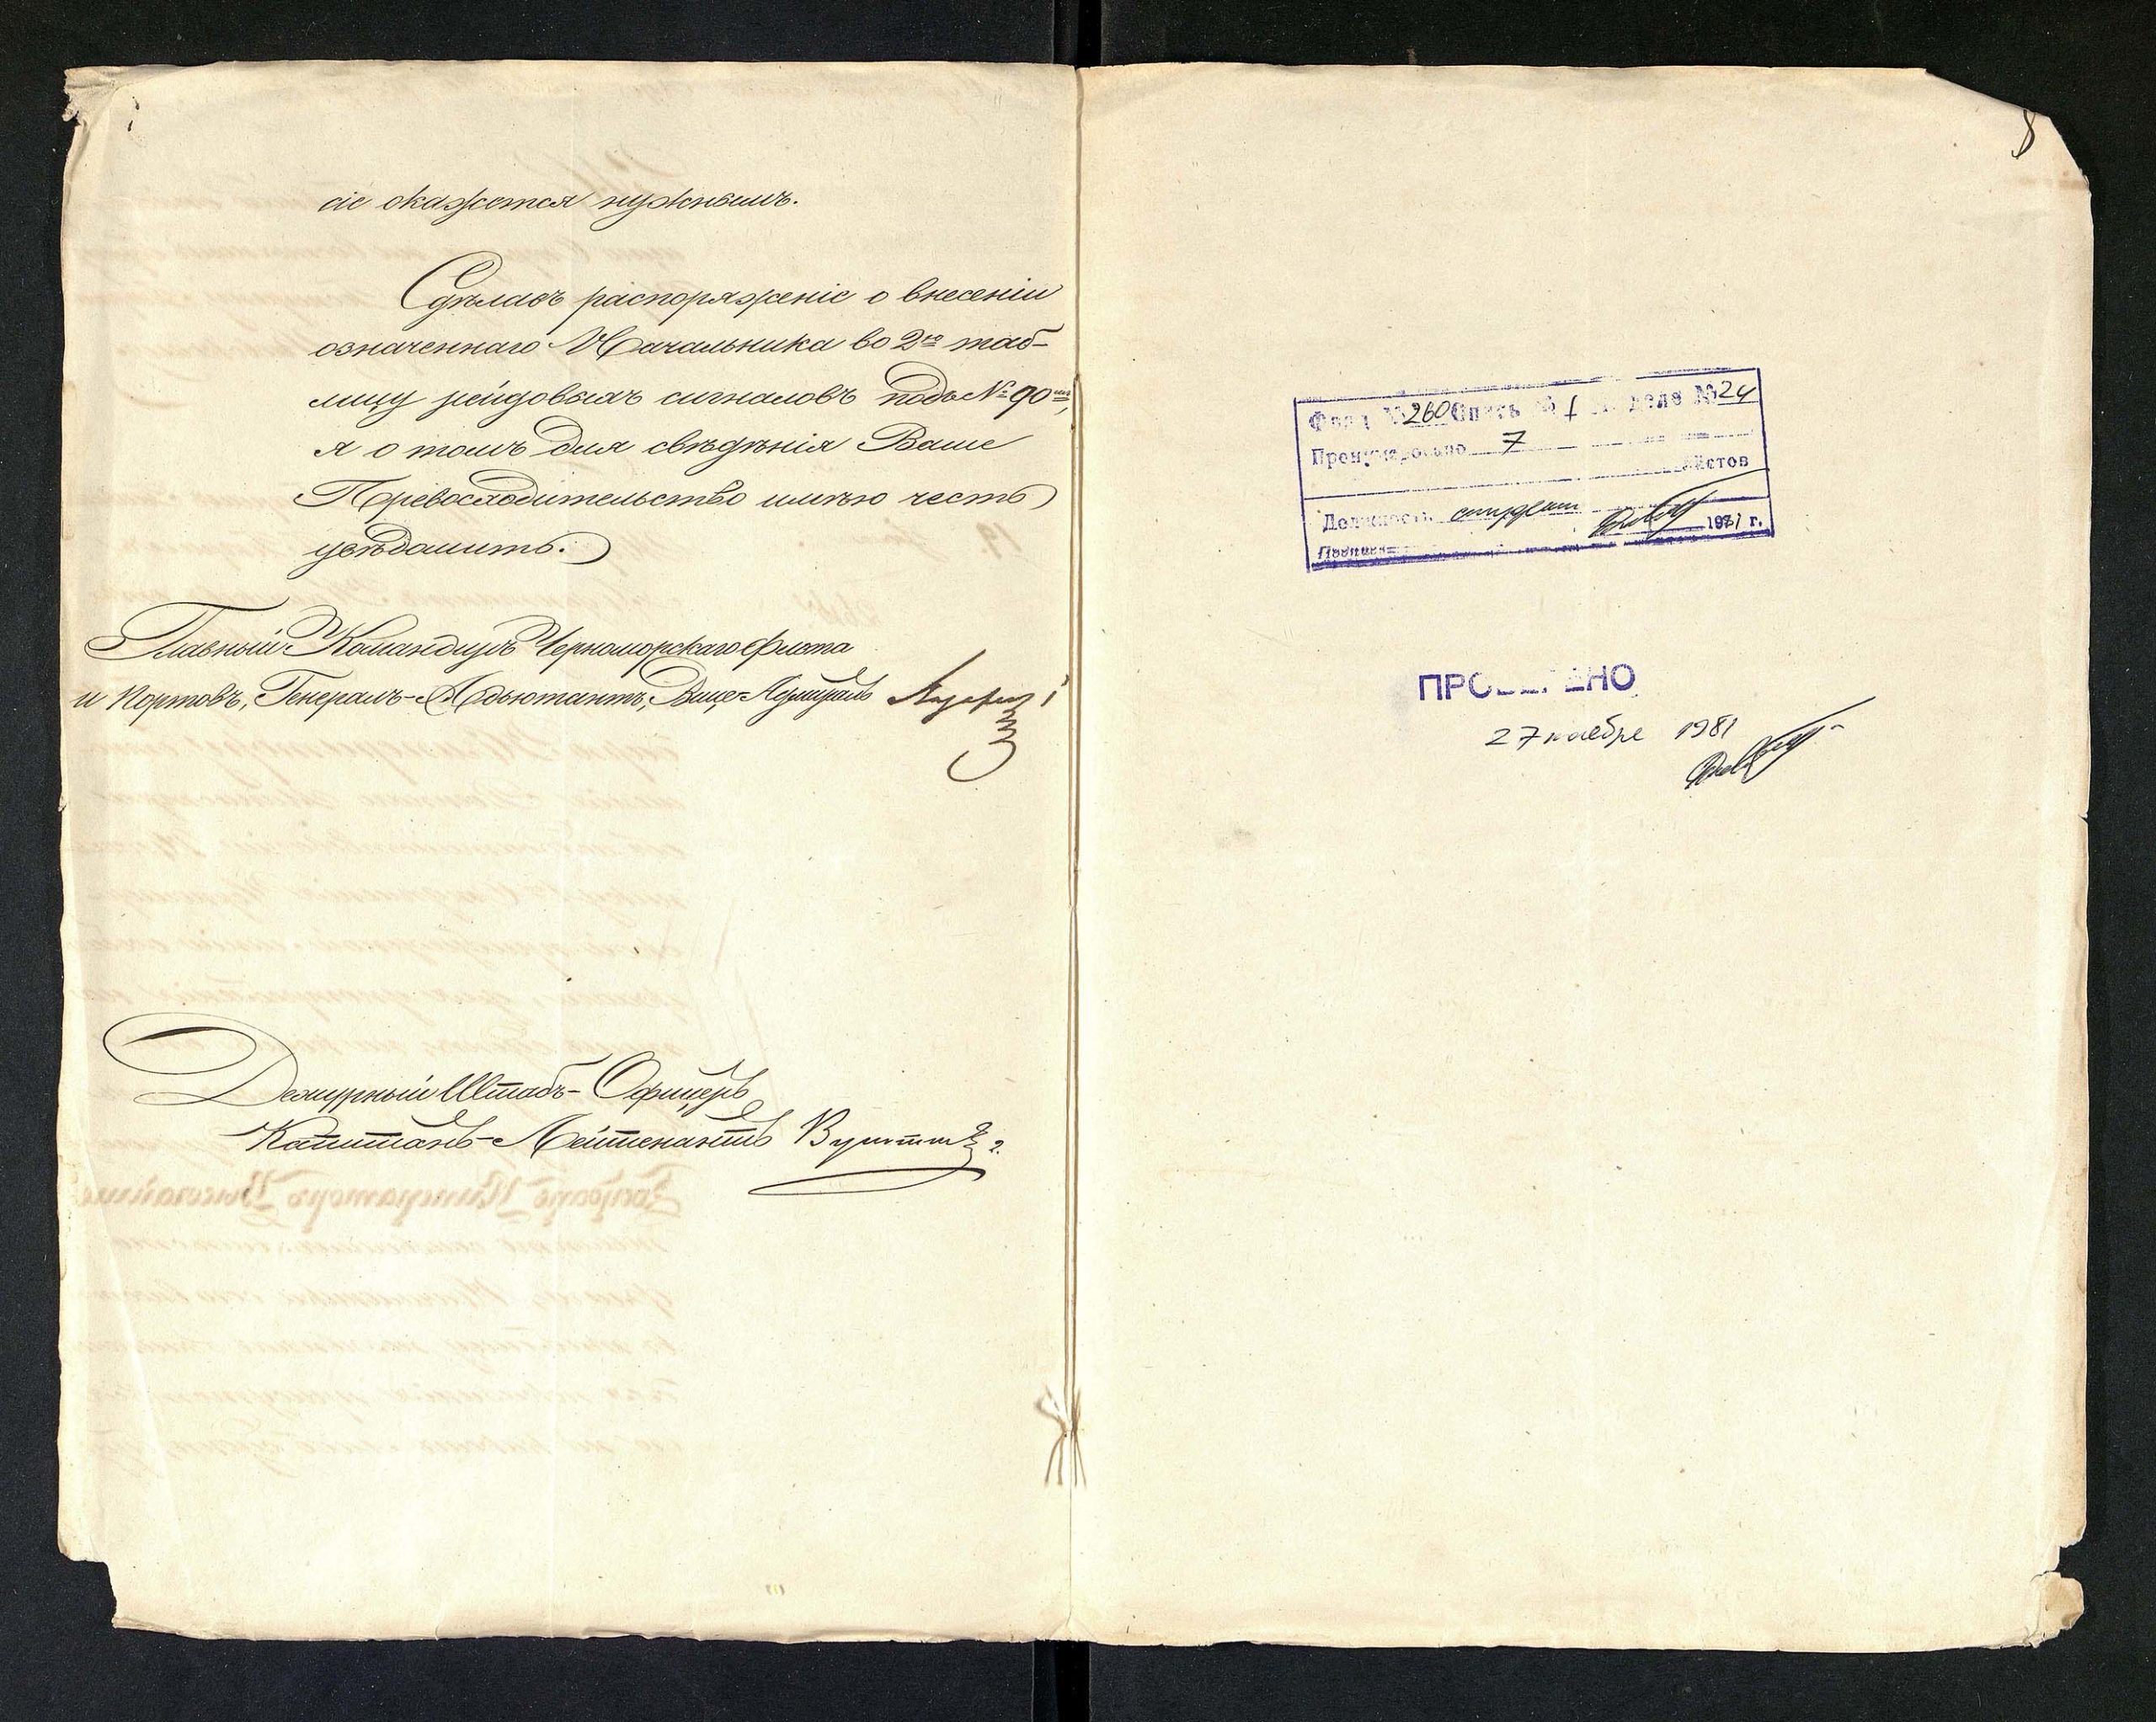 сіе окажется нужнымъ.
Сдѣлавъ распоряженіе о внесеніи
означеннаго Начальника во 2ю таб-
лицу рейдовыхъ сигналовъ подъ № 90мъ,
я о томъ для свѣдѣнія Ваше
Превосходительство имѣю честь
увѣдомить.
Главный Командиръ Черноморскаго флота
и портовъ, Генералъ-Адъютантъ, Вице-Адмиралъ Лазаревъ
Дежурный Штабъ-Офицеръ
Капитанъ-Лейтенантъ
8
Фонд № 260 Опись № 1 дело № 24
Пронумеровано 7
листов
Должность студент
1981 г.
Подпись
ПРОВЕРЕНО
27 ноября 1981